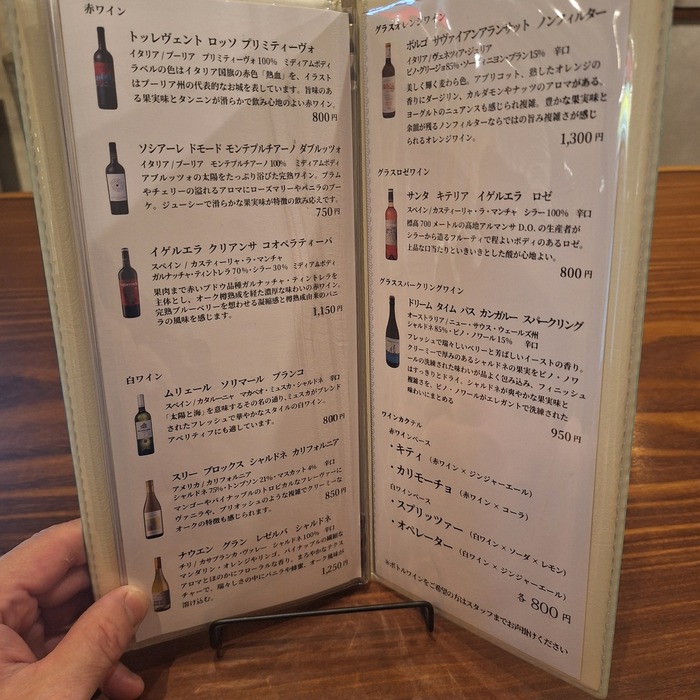 赤ワイン
トッレヴェント ロッソ プリミティーヴォ
イタリア/プーリア プリミティーヴォ100% ミディアムボディ
ラベルの色はイタリア国旗の赤色「熱血」を、イラスト
はプーリア州の代表的なお城を表しています。旨味のあ
る果実味とタンニンが滑らかで飲み心地のよい赤ワイン。
800円
ソシアーレ ドモード モンテプルチアーノ ダブルッツォ
イタリア/プーリア モンテプルチアーノ100% ミディアムボディ
アブルッツォの太陽をたっぷり浴びた完熟ワイン。プラム
やチェリーの溢れるアロマにローズマリーやバニラのブー
ケ。ジューシーで滑らかな果実味が特徴の飲み応えです。
750円
イゲルエラ クリアンサ コオペラティーバ
スペイン / カスティーリャ・ラ・マンチャ
ガルナッチャ・ティントレラ70%・シラー30% ミディアムボディ
果肉まで赤いブドウ品種ガルナッチャ・ティントレラを
主体とし、オーク樽熟成を経た濃厚な味わいの赤ワイン。
完熟ブルーベリーを想わせる凝縮感と樽熟成由来のバニ
ラの風味を感じます。
1,150円
白ワイン
ムリェール ソリマール ブランコ
スペイン/カタルーニャ マカベオ・ミュスカ・シャルドネ 辛口
「太陽と海」を意味するその名の通り、ミュスカがブレンド
されたフレッシュで華やかなスタイルの白ワイン。
アペリティフにも適しています。
800円
スリー ブロックス シャルドネ カリフォルニア
アメリカ / カリフォルニア
シャルドネ75%・トンプソン21%・マスカット4% 辛口
マンゴーやパイナップルのトロピカルなフレーヴァーに
ヴァニラや、ブリオッシュのような複雑でクリーミーな
オークの特徴も感じられます。
850円
ナウエン グラン レゼルバ シャルドネ
チリ / カサブランカ・ヴァレー シャルドネ100% 辛口
マンダリン・オレンジやリンゴ、パイナップルの繊細な
アロマとほのかにフローラルな香り。まろやかなテクス
チャーで、瑞々しさの中にバニラや蜂蜜、オーク風味が
溶け込む。
1,250円
グラスオレンジワイン
ボルゴ サヴァイアンアランサット ノンフィルター
イタリア/ヴェネツィア・ジューリア
ピノ・グリージョ85%・ソーヴィニヨン・ブラン15% 辛口
美しく輝く麦わら色。アプリコット、熟したオレンジの
香りにダージリン、カルダモンやナッツのアロマがある。
ヨーグルトのニュアンスも感じられ複雑。豊かな果実味と
余韻が残るノンフィルターならではの旨み複雑さが感じ
られるオレンジワイン。
1,300円
グラスロゼワイン
サンタ キテリア イゲルエラ ロゼ
スペイン/カスティーリャ・ラ・マンチャ シラー100% 辛口
標高700メートルの高地アルマンサD.O.の生産者が
シラーから造るフルーティで程よいボディのあるロゼ。
上品な口当たりといきいきとした酸が心地よい。
800円
グラススパークリングワイン
ドリーム タイム パス カンガルー スパークリング
オーストラリア / ニュー・サウス・ウェールズ州
シャルドネ85%・ピノ・ノワール15% 辛口
フレッシュで瑞々しいベリーと芳ばしいイーストの香り。
クリーミーで厚みのあるシャルドネの果実をピノ・ノワ
ールの洗練された味わいが品よく包み込み、フィニッシュ
はすっきりとドライ。シャルドネが爽やかな果実味と
複雑さを、ピノ・ノワールがエレガントで洗練された
味わいにまとめる
950円
ワインカクテル
赤ワインベース
・キティ (赤ワイン × ジンジャーエール)
・カリモーチョ (赤ワイン × コーラ)
白ワインベース
・スプリッツァー (白ワイン × ソーダ × レモン)
・オペレーター (白ワイン × ジンジャーエール)
各800円
※ボトルワインをご希望の方はスタッフまでお声掛けください